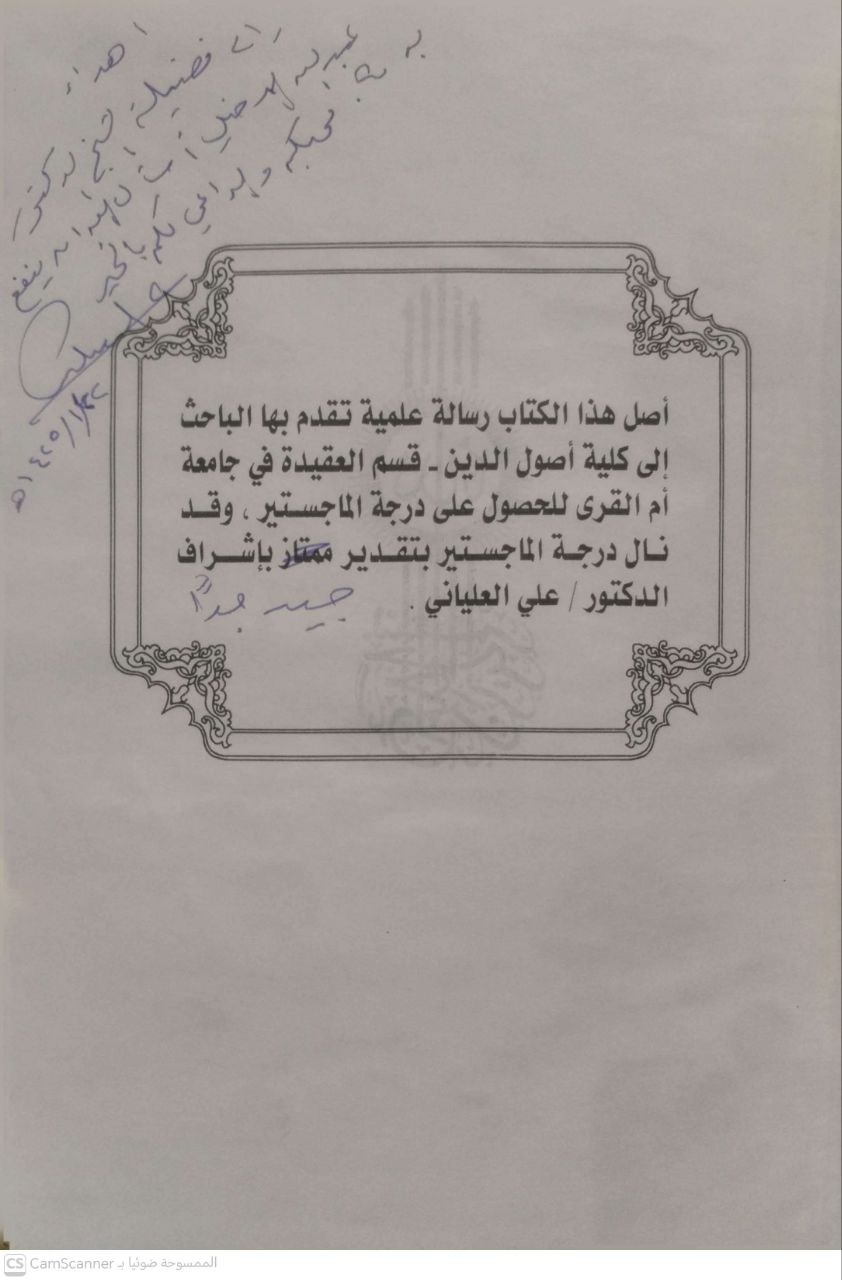 اهداء
إلى فضيلة الشيخ الدكتور
عبدالله ينفع
به
محبكم والداعي لكم بالخير
١٤٢٥/١/٢٢هـ
أصل هذا الكتاب رسالة علمية تقدم بها الباحث
إلى كلية أصول الدين ـ قسم العقيدة في جامعة
أم القرى للحصول على درجة الماجستير ، وقد
نال درجة الماجستير بتقدير ممتاز بإشراف
الدكتور / علي العلياني .
جيد جداً
CS CamScanner الممسوحة ضوئيا بـ